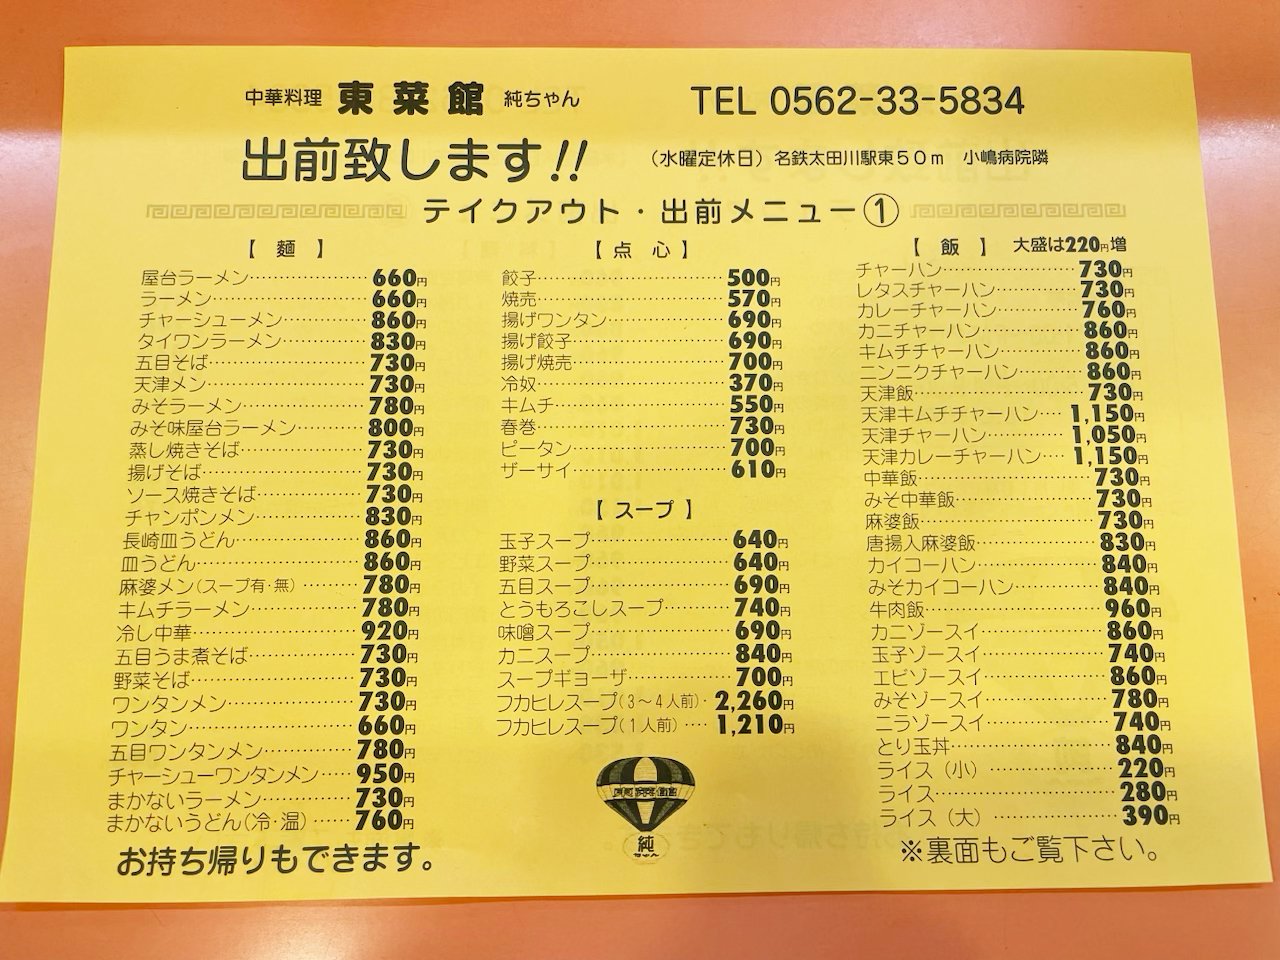 中華料理 東菜館 純ちゃん
TEL 0562-33-5834
出前致します!!
（水曜定休日）名鉄太田川駅東50m 小嶋病院隣
テイクアウト・出前メニュー①
【 麺 】
屋台ラーメン 660円
ラーメン 660円
チャーシューメン 860円
タイワンラーメン 830円
五目そば 730円
天津メン 730円
みそラーメン 780円
みそ味屋台ラーメン 800円
蒸し焼きそば 730円
揚げそば 730円
ソース焼きそば 730円
チャンポンメン 830円
長崎皿うどん 860円
皿うどん 860円
麻婆メン（スープ有・無） 780円
キムチラーメン 780円
冷し中華 920円
五目うま煮そば 730円
野菜そば 730円
ワンタンメン 730円
ワンタン 660円
五目ワンタンメン 780円
チャーシューワンタンメン 950円
まかないラーメン 730円
まかないうどん（冷・温） 760円
お持ち帰りもできます。
【 点 心 】
餃子 500円
焼売 570円
揚げワンタン 690円
揚げ餃子 690円
揚げ焼売 700円
冷奴 370円
キムチ 550円
春巻 730円
ピータン 700円
ザーサイ 610円
【 スープ 】
玉子スープ 640円
野菜スープ 640円
五目スープ 690円
とうもろこしスープ 740円
味噌スープ 690円
カニスープ 840円
スープギョーザ 700円
フカヒレスープ（3〜4人前） 2,260円
フカヒレスープ（1人前） 1,210円
東菜館
純
ちゃん
【 飯 】 大盛は220円増
チャーハン 730円
レタスチャーハン 730円
カレーチャーハン 760円
カニチャーハン 860円
キムチチャーハン 860円
ニンニクチャーハン 860円
天津飯 730円
天津キムチチャーハン 1,150円
天津チャーハン 1,050円
天津カレーチャーハン 1,150円
中華飯 730円
みそ中華飯 730円
麻婆飯 730円
唐揚入麻婆飯 830円
カイコーハン 840円
みそカイコーハン 840円
牛肉飯 960円
カニゾースイ 860円
玉子ゾースイ 740円
エビゾースイ 860円
みそゾースイ 780円
ニラゾースイ 740円
とり玉丼 840円
ライス（小） 220円
ライス 280円
ライス（大） 390円
※裏面もご覧下さい。